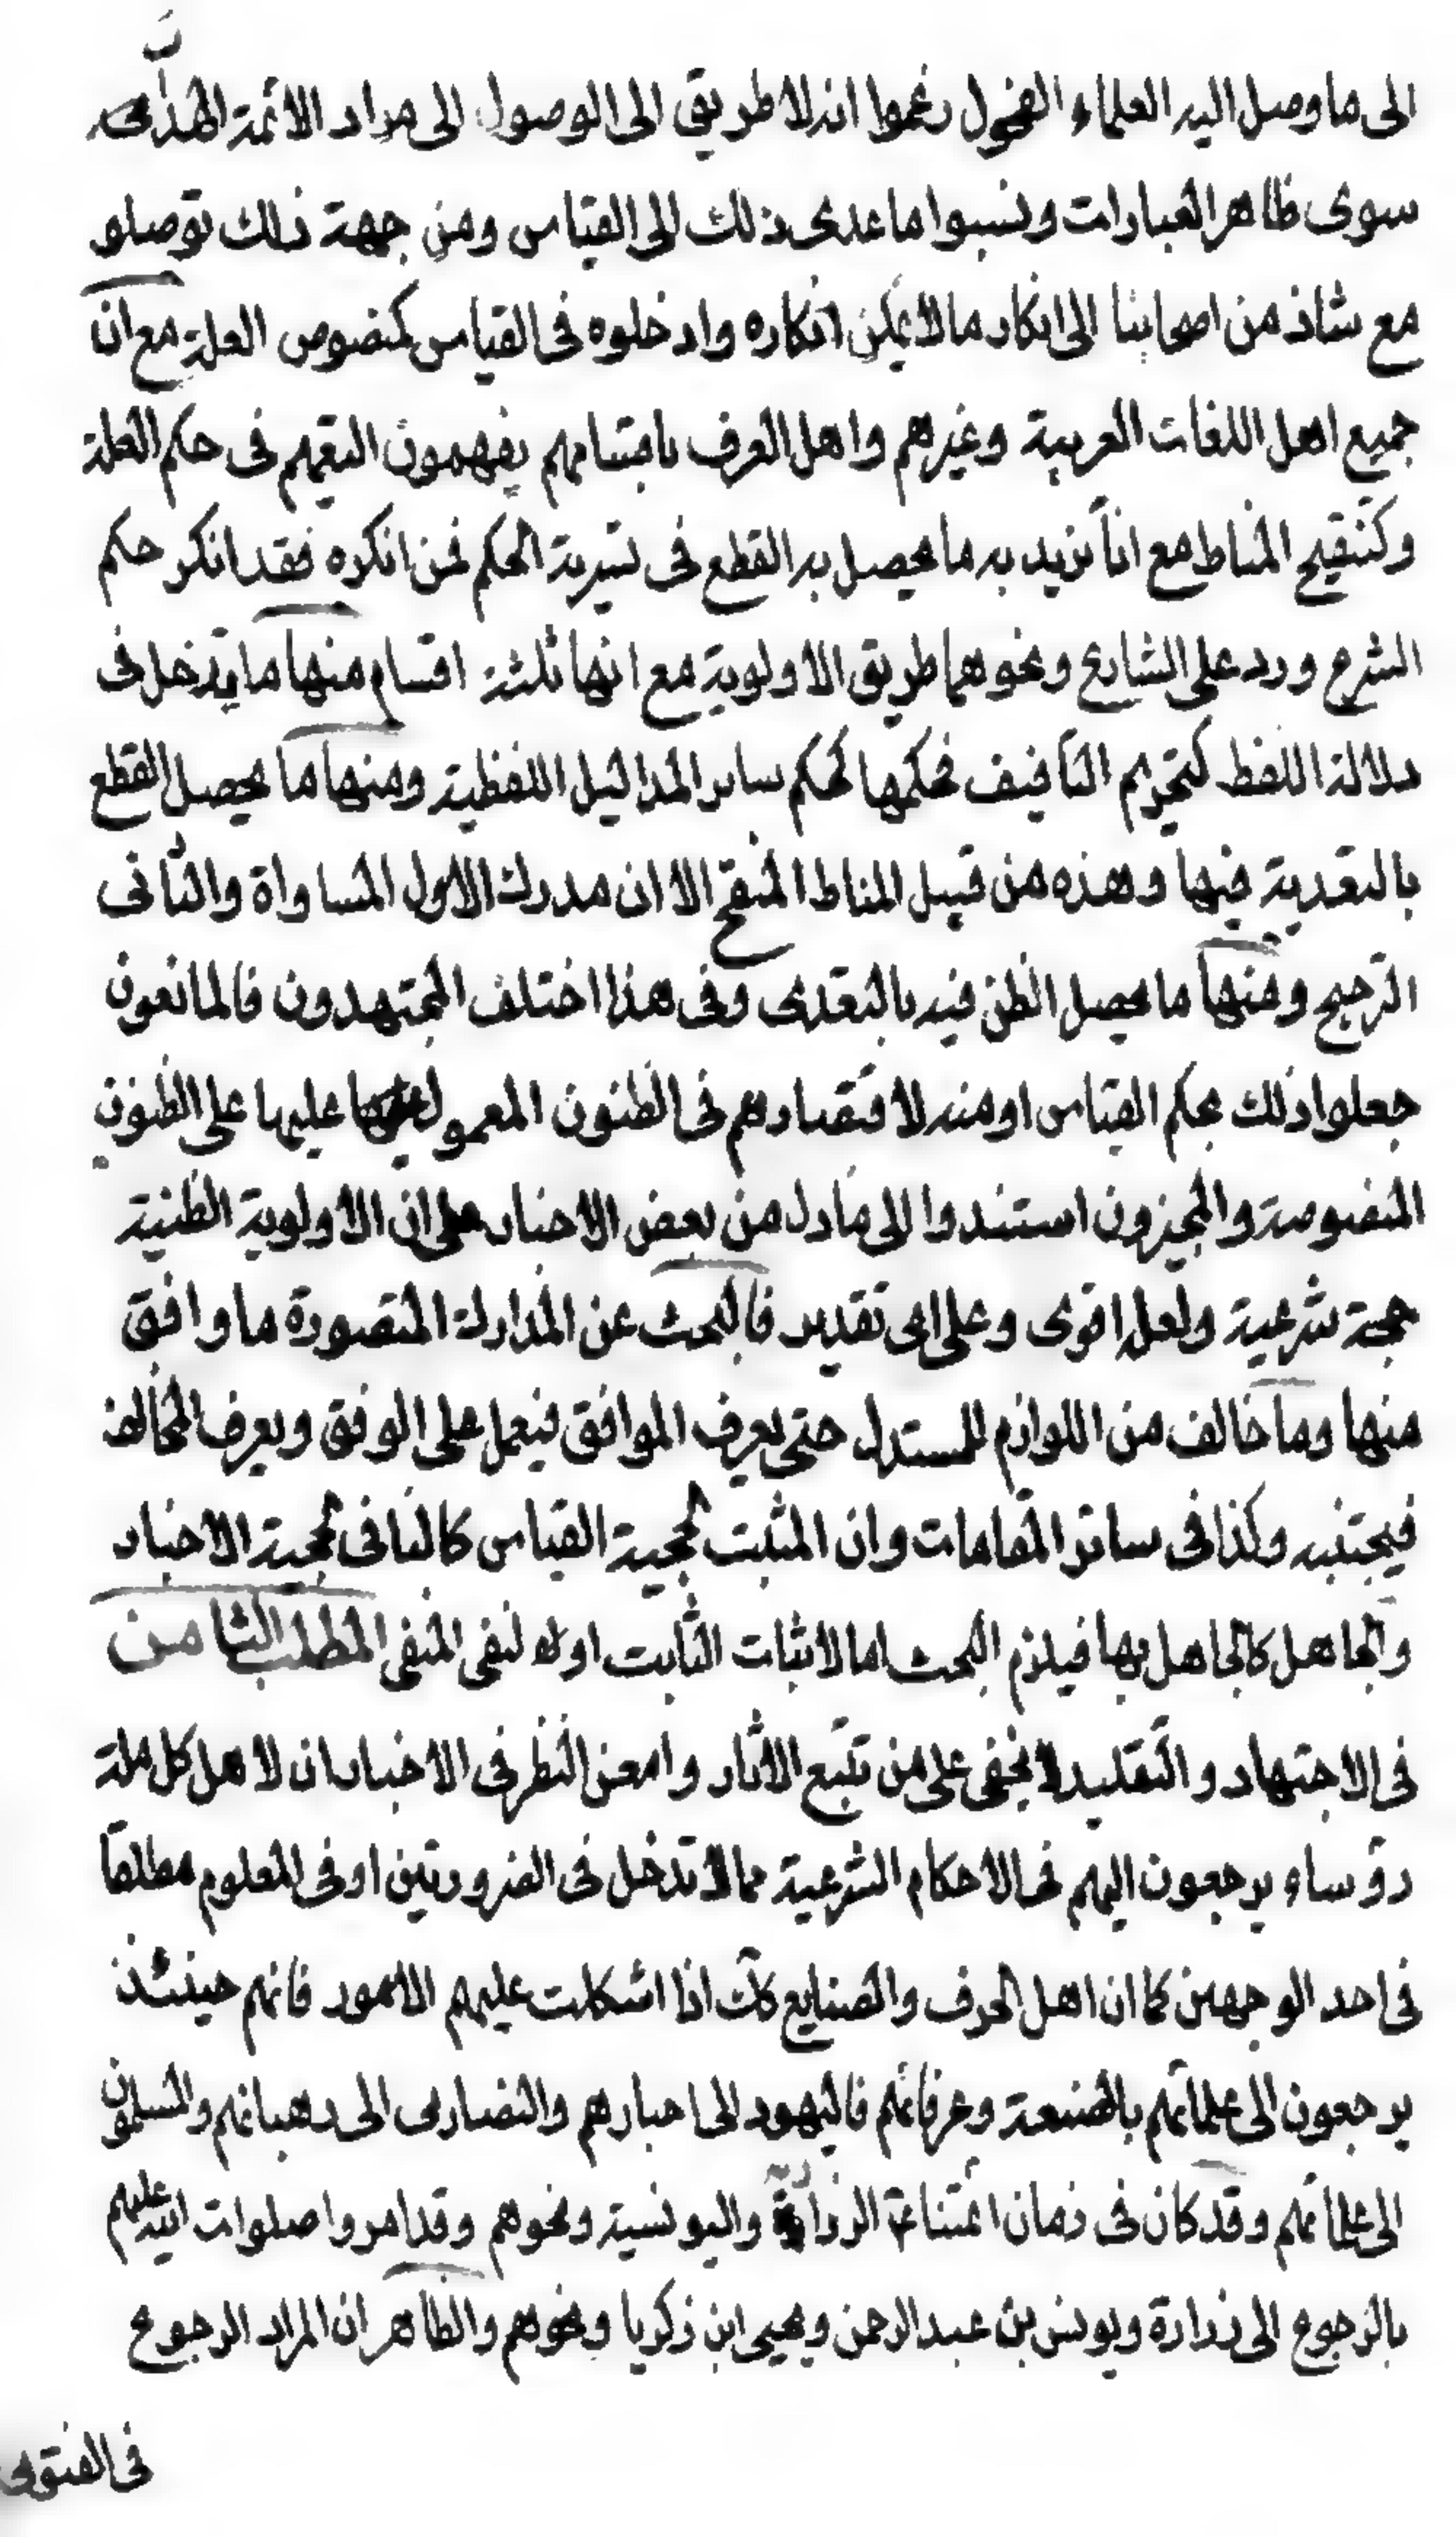 الى ما وصل اليه العلماء الفحول زعموا انه لا طريق الى الوصول الى مراد الائمة الهداة
سوى ظاهر العبارات ونسبوا ما عدى ذلك الى القياس ومن جهة ذلك توصلو
مع شاذ من اصحابنا الى انكار ما لا يمكن انكاره وادخلوه فى القياس كمنصوص العلة مع ان
جميع اهل اللغات العربية وغيرهم واهل العرف باقسامهم يفهمون التعميم فى حكم العلة
وكتنقيح المناط مع انا نريد به ما يحصل به القطع فى تسرية الحكم فمن انكره فقد انكر حكم
الشرع ورد على الشارع ونحوهما طريق الاولوية مع انها ثلثة اقسام منها ما يدخل فى
دلالة اللفظ كتحريم التأفيف فحكمها كحكم ساير المداليل اللفظية ومنها ما يحصل القطع
بالتعدية فيها وهذه من قبيل المناط المنقح الا ان مدرك الاول المساواة والثانى
الترجيح ومنها ما يحصل الظن فيه بالتعدى وفى هذا اختلف المجتهدون فالمانعون
جعلوا ذلك بحكم القياس او منه لاقتصارهم فى الظنون المعمول عليها على الظنون
المنصوصة والمجيزون استندوا الى ما دل من بعض الاخبار على ان الاولوية الظنية
حجة شرعية ولعله اقوى وعلى اى تقدير فالبحث عن المدارك المتصورة ما وافق
منها وما خالف من اللوازم للمستدل حتى يعرف الموافق فيعمل على الوفق ويعرف المخالف
فيجتنبه وكذا فى سائر المقامات وان المثبت لحجية القياس كالنافى لحجية الاخبار
والجاهل كالجاهل بها فيلزم البحث اما لاثبات الثابت او لنفى المنفى المطلب الثامن
فى الاجتهاد والتقليد لا يخفى على من تتبع الاثار وامعن النظر فى الاخبار ان لاهل كل ملة
رؤساء يرجعون اليهم فى الاحكام الشرعية مما لا تدخل فى الضروريتين او فى المعلوم مطلقا
فى احد الوجهين كما ان اهل الحرف والصنايع كك اذا اشكلت عليهم الامور فانهم حينئذ
يرجعون الى علمائهم بالصنعة وعرفائهم فاليهود الى احبارهم والنصارى الى رهبانهم والمسلمون
الى علمائهم وقد كان فى زمان ائمتنا الزرارية واليونسية ونحوهم وقد امروا صلوات الله عليهم
بالرجوع الى زرارة ويونس بن عبد الرحمن ويحيى ابن زكريا ونحوهم والظاهر ان المراد الرجوع
فى الفتوى